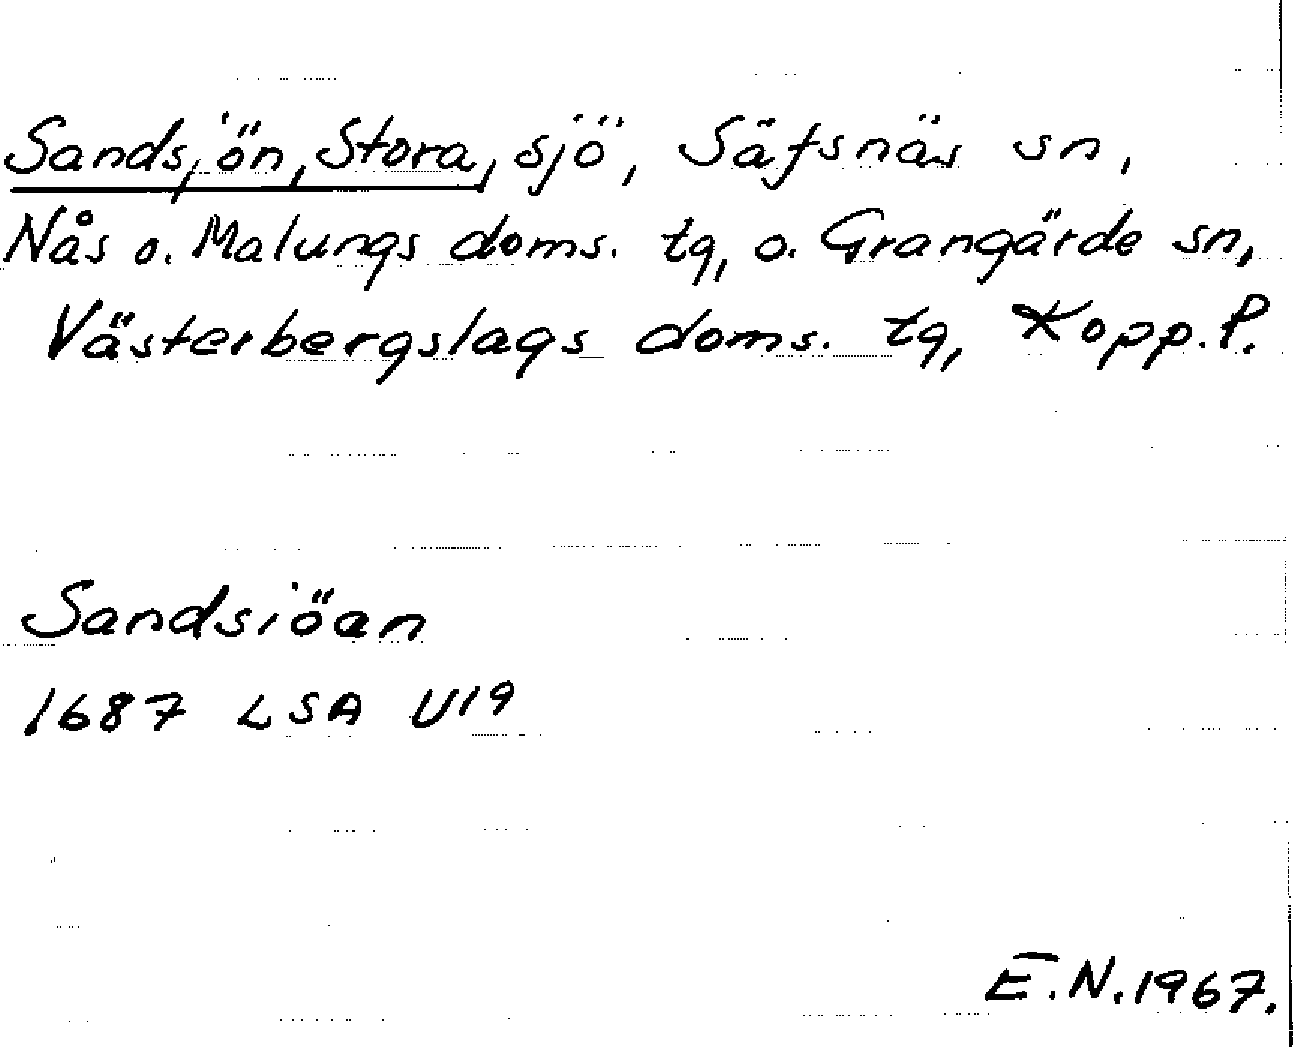 Sandsjön, Stora, sjö, Säfsnäs sn,
Nås o. Malungs doms. tg, o. Grangärde sn,
Västerbergslags doms. tg, Kopp. l.
Sandsiöan
1687 LSA U19
E.N. 1967.